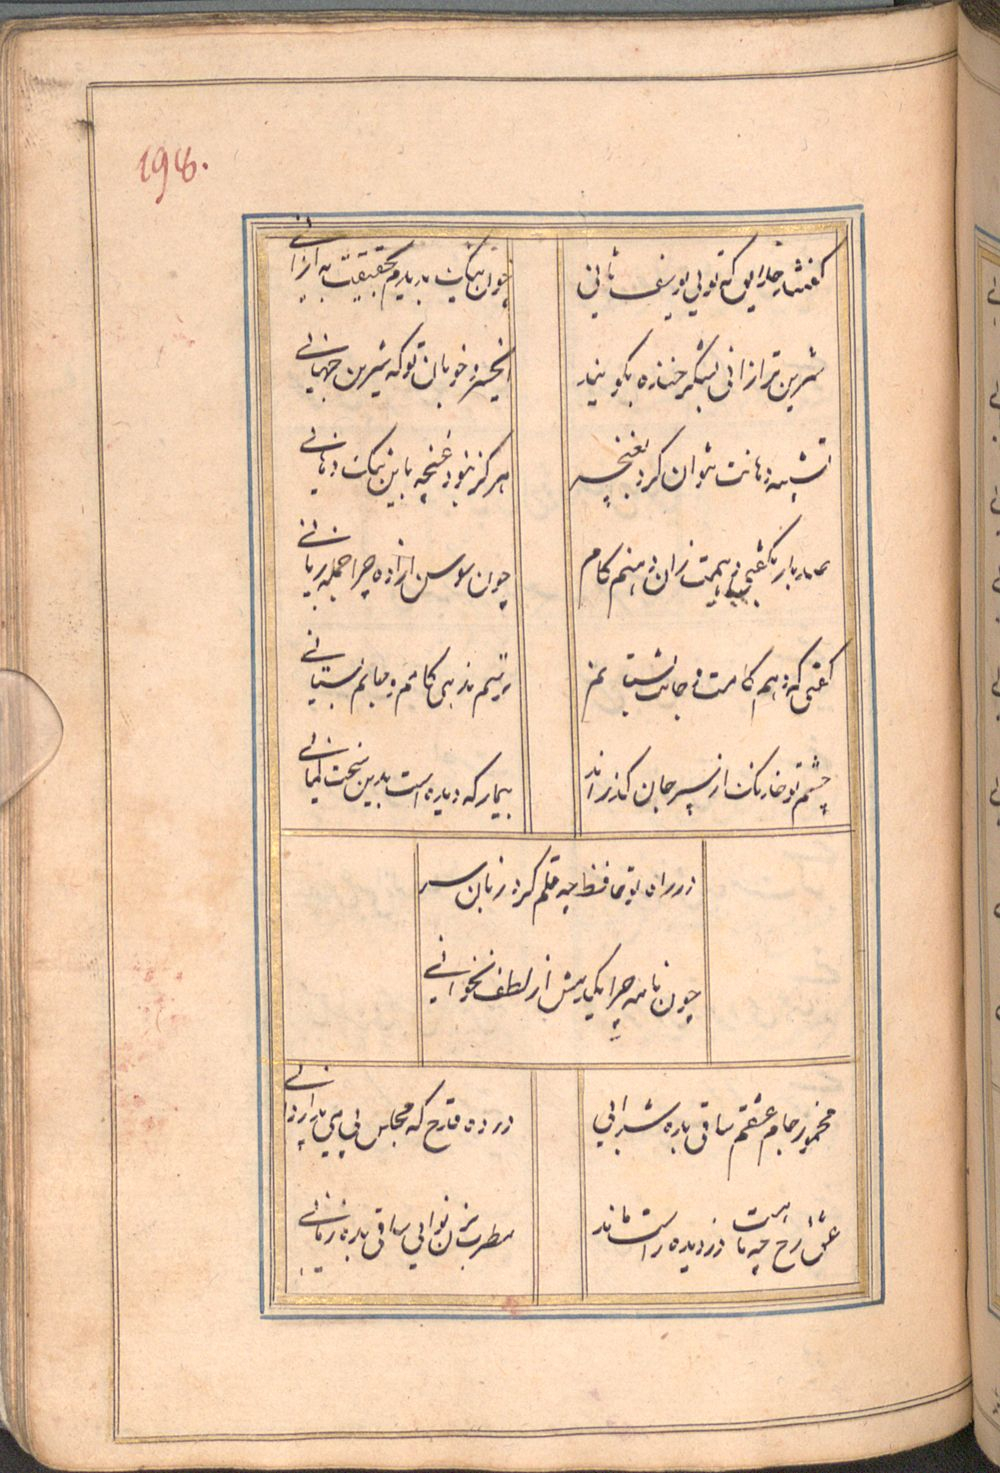 198.
گفتند خلایق که تویی یوسف ثانی
چون نیک بدیدم بحقیقت به ازانی
شیرین تر ازانی بشکر خنده بگویند
ای خسرو خوبان تو که شیرین جهانی
تشبیه دهانت نتوان کرد بغنچه
هرگز نبود غنچه باین تنگ دهانی
صد بار بگفتی دهمت زان دهنم کام
چون سوسن آزاده چرا جمله زبانی
گفتی که دهم کامت و جانت بستانم
ترسم ندهی کامم و جانم بستانی
چشم تو خدنک از سپر جان گذراند
بیمار که دیده است بدین سخت کمانی
در راه تو حافظ چو قلم کرد زبان سر
چون نامه چرا یکدمش از لطف نخوانی
مخمور جام عشقم ساقی بده شرابی
در ده قدح که مجلس بی می ندارد
عشق رخ چو ماهت در دیده راست ناید
مطرب بزن نوایی ساقی بده